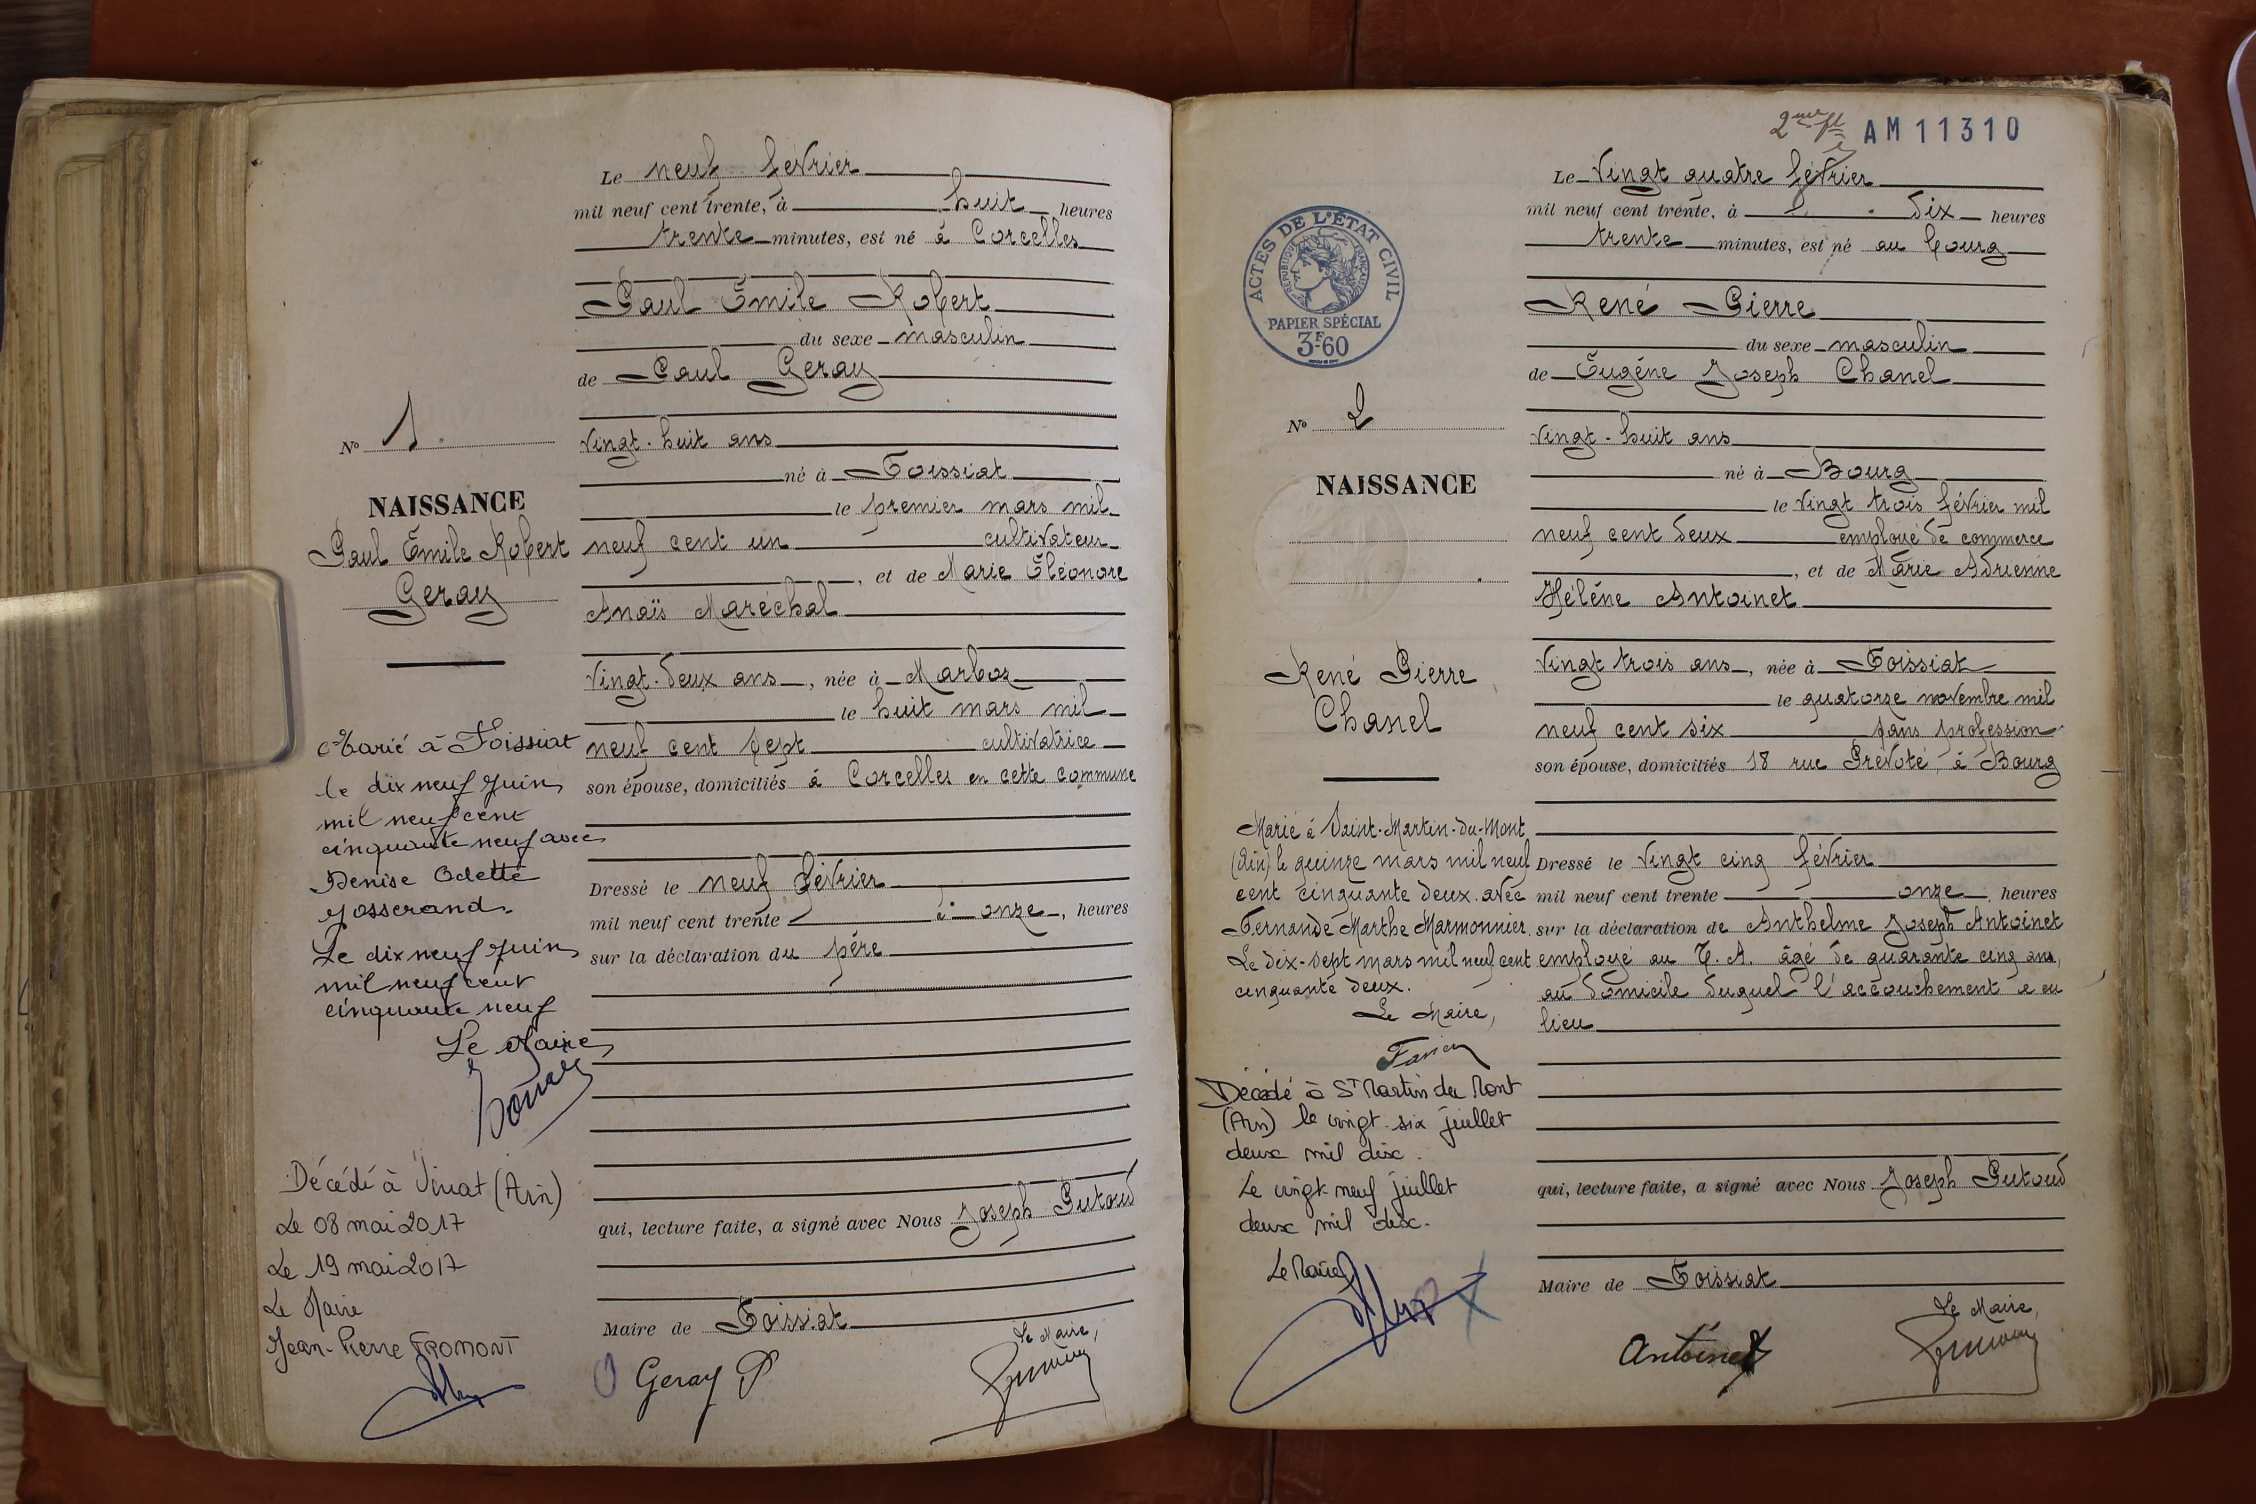 Le neuf février
mil neuf cent trente, à huit heures
trente minutes, est né à Corcelles
Paul Émile Robert
du sexe masculin
de Paul Geray
vingt-huit ans
né à Foissiat
le premier mars mil
neuf cent un cultivateur
, et de Marie Éléonore
Anaïs Maréchal
vingt-deux ans, née à Marboz
le huit mars mil
neuf cent sept cultivatrice
son épouse, domiciliés à Corcelles en cette commune
Dressé le neuf février
mil neuf cent trente à onze, heures
sur la déclaration du père
qui, lecture faite, a signé avec Nous Joseph Putoud
Maire de Foissiat
Le Maire,
Geray P
No 1.
NAISSANCE
Paul Émile Robert
Geray
Marié à Foissiat
le dix neuf juin
mil neuf cent
cinquante neuf avec
Denise Odette
Josserand.
Le dix neuf juin
mil neuf cent
cinquante neuf
Le Maire
Décédé à Viriat (Ain)
Le 08 mai 2017
Le 19 mai 2017
Le Maire
Jean-Pierre FROMONT
AM 11310
Le vingt quatre février
mil neuf cent trente, à dix heures
trente minutes, est né au bourg
René Pierre
du sexe masculin
de Eugène Joseph Chanel
vingt-huit ans
né à Bourg
le vingt trois février mil
neuf cent deux employé de commerce
, et de Marie Adrienne
Hélène Antoinet
vingt trois ans, née à Foissiat
le quatorze novembre mil
neuf cent six sans profession
son épouse, domiciliés 18 rue Prévoté, à Bourg
Dressé le vingt cinq février
mil neuf cent trente onze, heures
sur la déclaration de Anthelme Joseph Antoinet
employé au T. A. âgé de quarante cinq ans,
au domicile duquel l'accouchement a eu
lieu
qui, lecture faite, a signé avec Nous Joseph Putoud
Maire de Foissiat
Le Maire,
Antoinet
ACTES DE L'ÉTAT CIVIL
RÉPUBLIQUE FRANÇAISE
PAPIER SPÉCIAL
3F60
No 2
NAISSANCE
René Pierre
Chanel
Marié à Saint-Martin-du-Mont
(Ain) le quinze mars mil neuf
cent cinquante deux avec
Fernande Marthe Marmonnier.
Le dix-sept mars mil neuf cent
cinquante deux.
Le Maire,
Décédé à St Martin du Mont
(Ain) le vingt-six juillet
deux mil dix.
Le vingt-neuf juillet
deux mil dix.
Le Maire